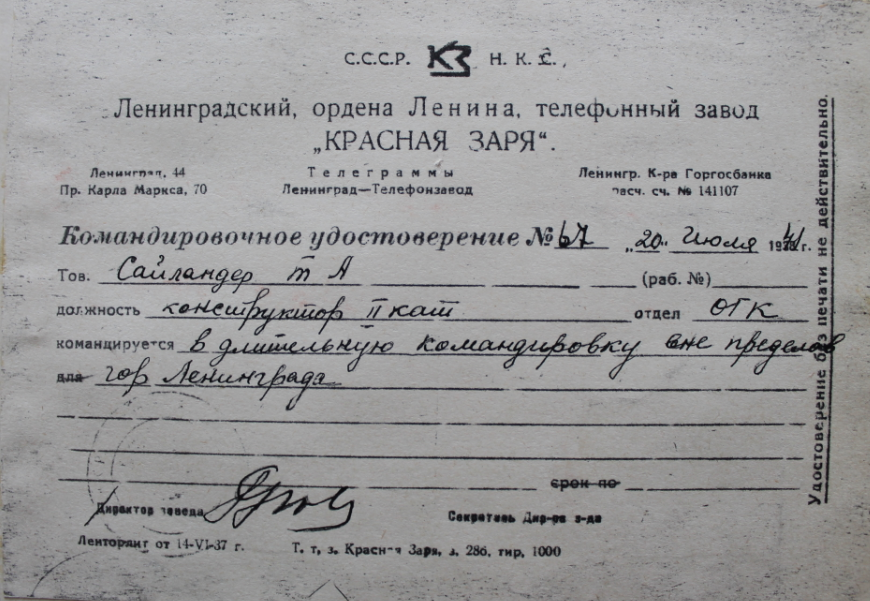 С.С.С.Р. КЗ Н. К. С.
Ленинградский, ордена Ленина, телефонный завод
„КРАСНАЯ ЗАРЯ“.
Ленинград, 44 Телеграммы Ленингр. К-ра Горгосбанка
Пр. Карла Маркса, 70 Ленинград—Телефонзавод расч. сч. № 141107
Командировочное удостоверение № 67 „20„ Июля 1941 г.
Тов. Сайландер Т А (раб. №)
должность конструктор II кат отдел ОГК
командируется в длительную командировку вне пределов
для гор Ленинграда
срок по
Директор завода Секретарь Дир-ра з-да
Ленторлит от 14-VI-37 г. Т. т, з. Красная Заря, з. 286, тир, 1000
Удостоверение без печати не действительно.